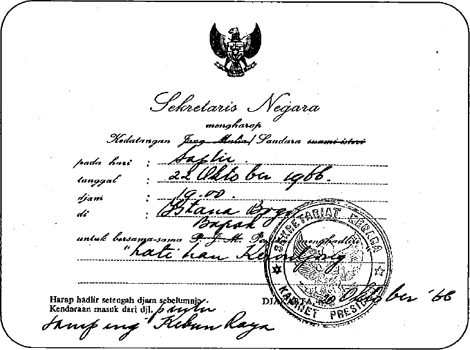 Sekretaris Negara
mengharap
Kedatangan Jang Mulia/Saudara suami isteri
pada hari : Saptu
tanggal : 22 Oktober 1966.
djam : 19.00
di : Istana Bogor
Bapak
untuk bersama-sama P. J. M. menghadliri
"Latihan
Harap hadlir setengah djam sebelumnja
DJAKARTA, 20 Oktober '66
Kendaraan masuk dari djl. pintu
samping Kebun Raya
SEKRETARIAT NEGARA
KABINET PRESIDEN